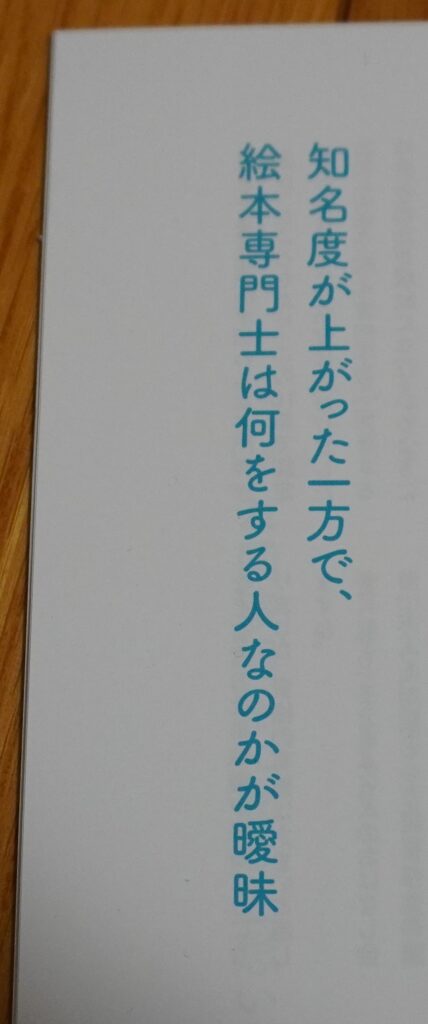 知名度が上がった一方で、
絵本専門士は何をする人なのかが曖昧